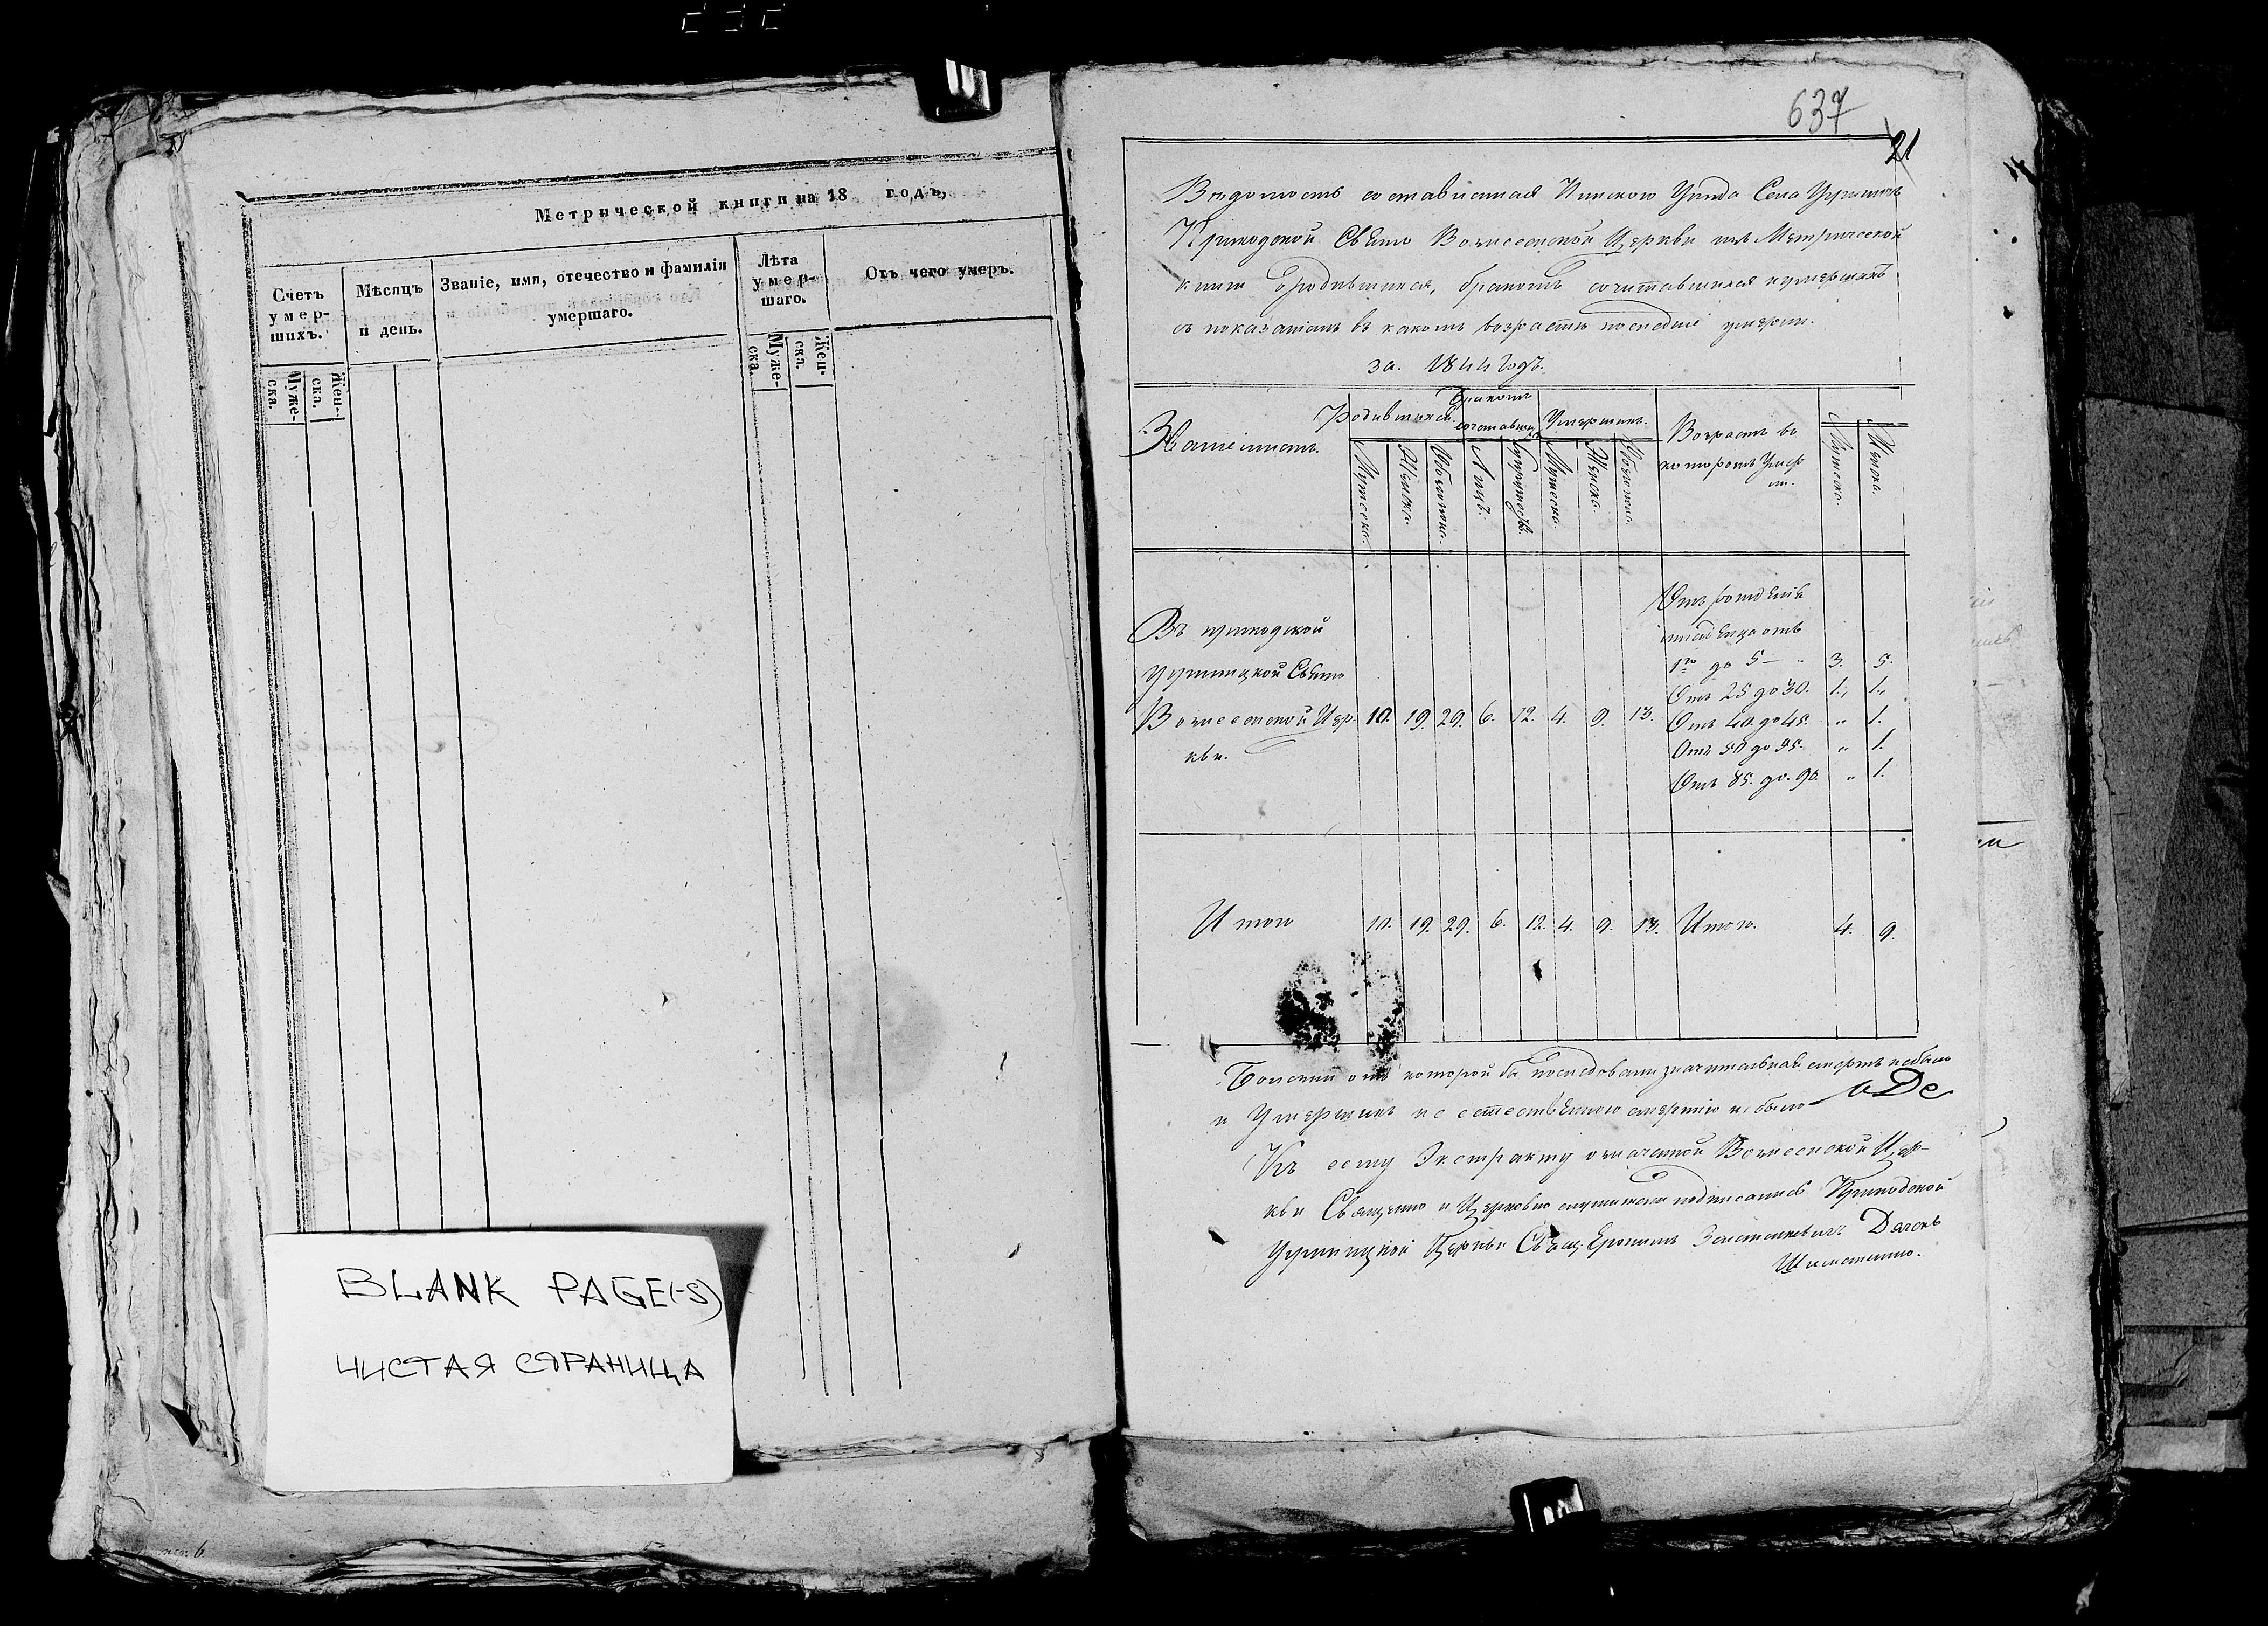 Метрической книги на 18 годъ,
Счетъ умер-шихъ.
Мѣсяцъ и день.
Званіе, имя, отечество и фамилія умершаго.
Лѣта умер-шаго.
Отъ чего умеръ.
Муже-ска.
Жен-ска.
Муже-ска.
Жен-ска.
BLANK PAGE(-S)
ЧИСТАЯ СТРАНИЦА
637
21
Вѣдомость составленная Пинского Уѣзда Села
Приходской Свято Вознесенской Церкви изъ Метрической
книги о родившихся, бракомъ сочитавшихся и умершихъ
съ показаніемъ въ какомъ возрастѣ последніе умерли.
за 1844 Годъ.
Родившихся.
Бракомъ
сочетавших
Умершихъ.
Возрастъ въ
которомъ Умер
ли.
Мужеска.
Женска.
Обоего пола.
Лицъ.
Супружествъ.
Мужеска.
Женска.
Обоего пола.
Мужеска.
Женска.
Отъ рожденія
отъ
1го до 5 — " 3. 5.
Отъ 25 до 30. 1. 1.
Въ приходской
Свято
Вознесенской Цер- 10. 19. 29. 6. 12. 4. 9. 13. Отъ 40. до 45. " 1.
кви.
Отъ 50 до 55. " 1.
Отъ 85. до 90. " 1.
Итого 10. 19. 29. 6. 12. 4. 9. 13. Итого. 4. 9.
отъ которой бы последовали значительная смерть небыло
и Умершихъ не естественною смертію небыло
Къ сему Экстракту означенной Вознесенской Цер-
кви Священно и Церковно служители подписались Приходской
Церкви Свящ. Дячокъ